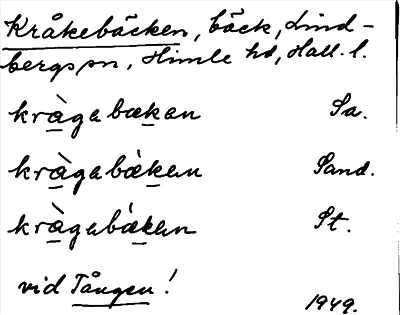 Kråkebäcken, bäck, Lind-
bergs sn, Himle hd, Hall. l.
kràgabækan Sa.
kràgabæ̀kæn Sand.
kràgabǽkæn St.
vid Tången!
1949.